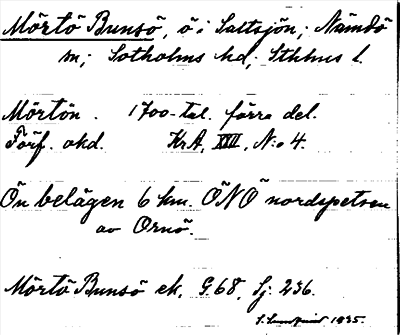 Mörtö Bunsö, ö i Saltsjön; Nämdö
sn; Sotholms hd; Sthlms l.
Mörtön. 1700-tal. förra del.
Förf. okd. KrA, XVII, N:o 4.
Ön belägen 6 km. ÖNÖ nordspetsen
av Ornö.
Mörtö Bunsö ek, G.68, Sj. 236.
1935.